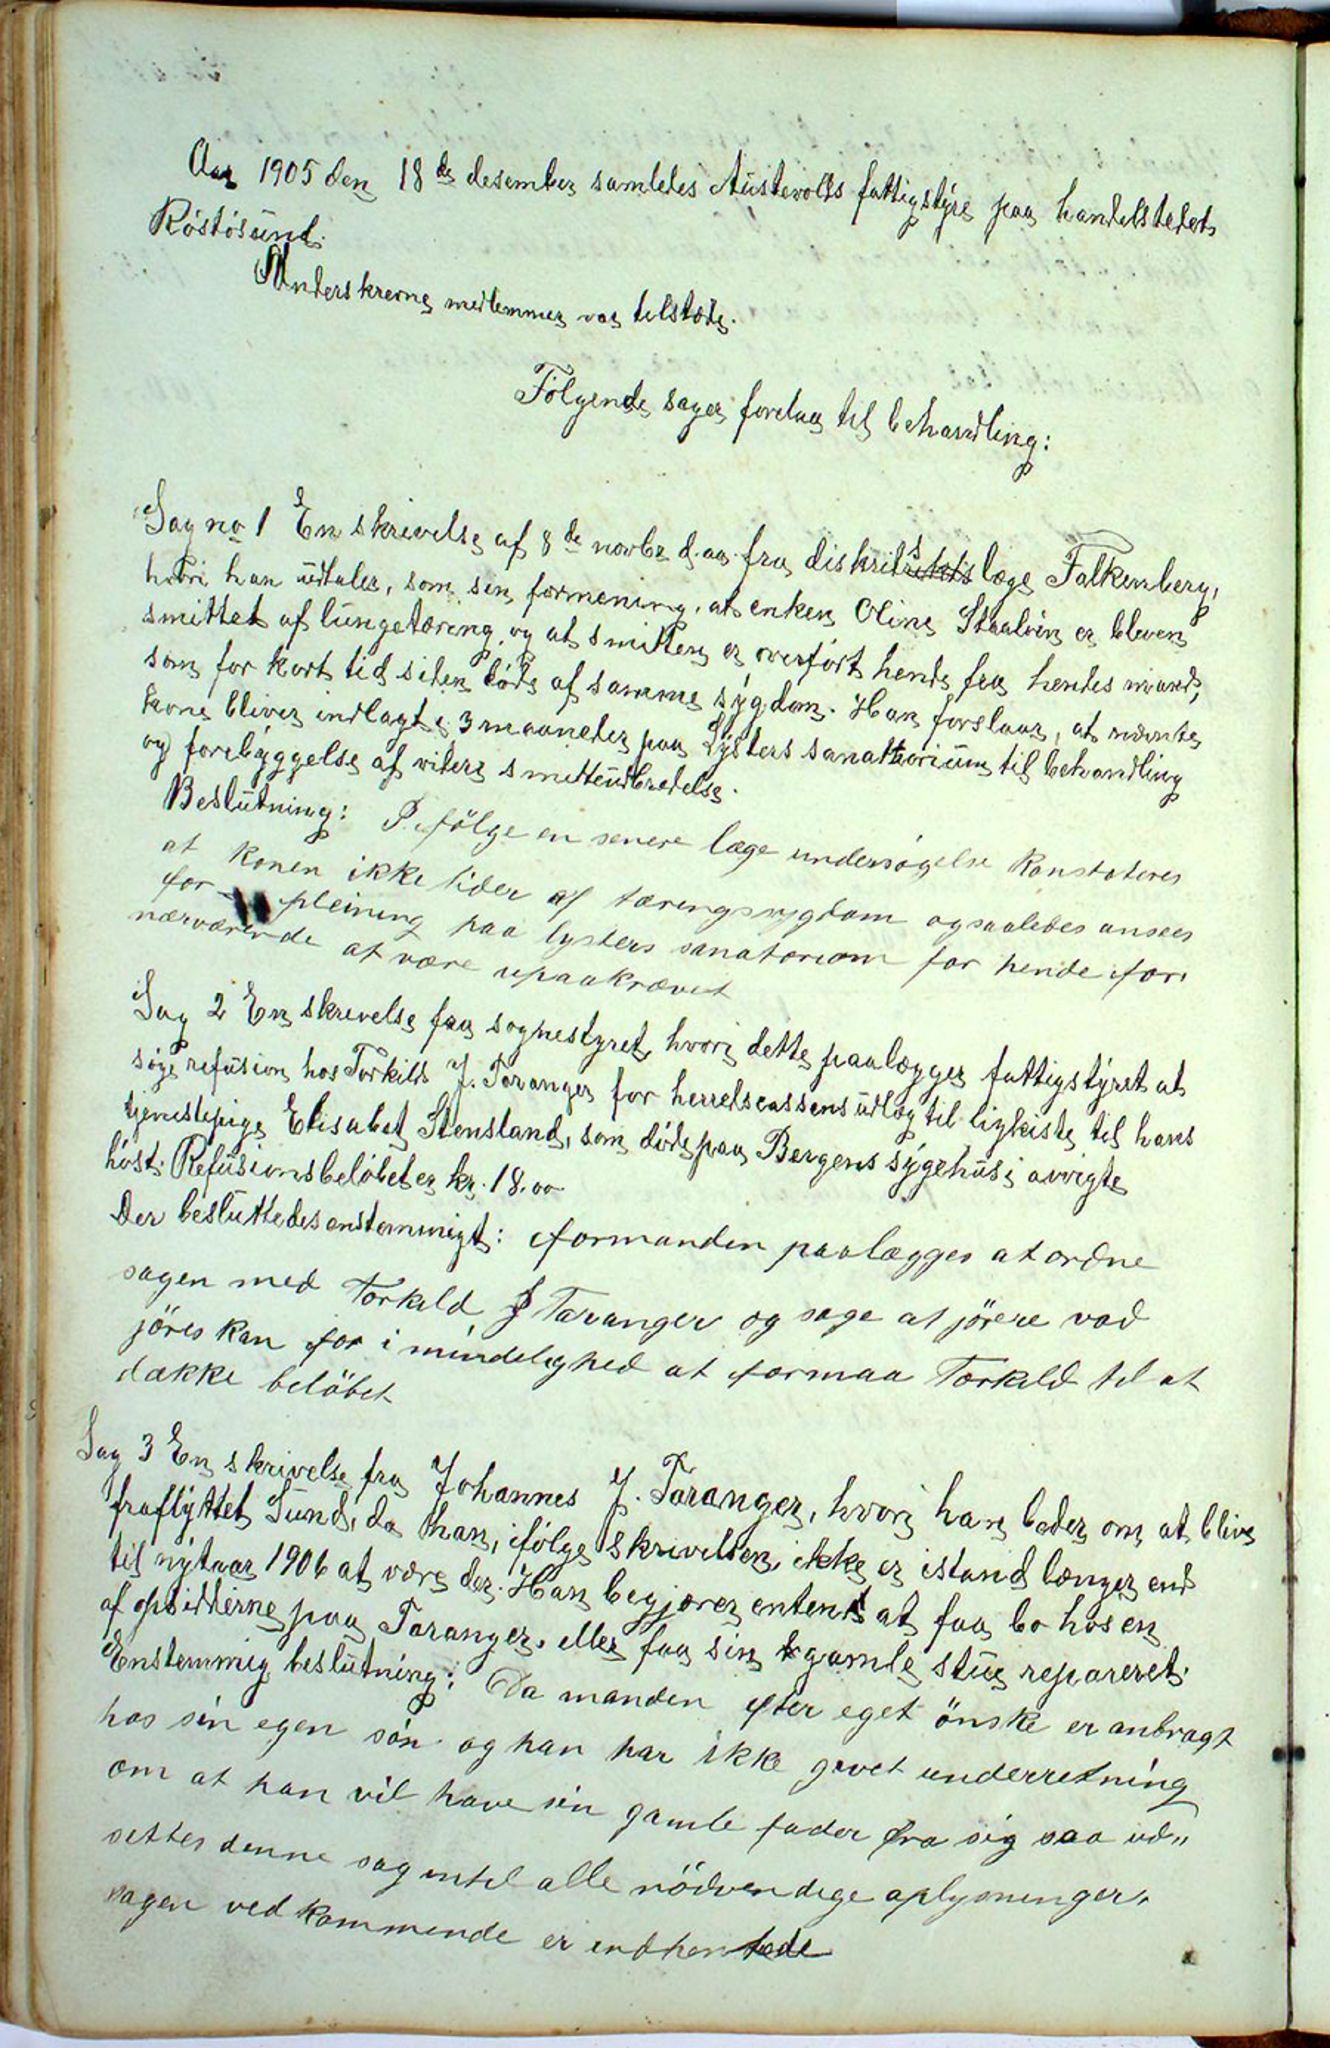 Aar 1905 den 18de desember samledes Austevolds fattigstyre paa handelstedet
Röstösund.
Underskrevne medlemmer var tilstæde.
Fölgende sager forelaa til behandling:
Sag no 1 En skrivelse af 8de novbr d.aa. fra diskrikslæge Falkenberg,
hvori han udtaler, som sin formening, at enken Oline Staalvin er bleven
smittet af lungetæring og at smitten er overfört hende fra hendes mand,
som for kort tid siden döde af samme sygdom. Han forslaar, at nævnte
kone bliver indlagt i 3 maaneder paa Lysters sanattorium til behandling
og forebyggelse af videre smitteudbredelse.
Beslutning: I fölge en senere læge undersøgelse konstateres
at konen ikke lider af tæringssygdom og saaledes ansees
for pleining paa lysters sanatorium for hende for
nærværende at være upaakrævet
Sag 2 En skrivelse fra sognestyret, hvori dette paalægger fattigstyret at
söge refusion hos Torkild J. Taranger for herredscassens udlæg til ligkiste til hans
tjenestepige Elisabet Stensland, som döde paa Bergens sygehus i avvigte
höst. Refusionsbelöbet er kr. 18.00
Der besluttedes enstemmigt: formanden paalægges at ordne
sagen med Torkild J Taranger og søge at jörere vad
jöres kan for i mindelighed at formaa Torkild til at
dække belöbet
Sag 3 En skrivelse fra Johannes J. Taranger, hvori han beder om at blive
fraflyttet Sund, da han, ifölge skrivelsen, ikke er istand længer end
til nytaar 1906 at være der. Han begjærer enten at faa bo hos en
af opsidderne paa Taranger, eller faa sin gamle stue reparert.
Enstemmig beslutning: Da manden efter eget önske er anbragt
hos sin egen sön og han har ikke givet underretning
om at han vil have sin gamle fader fra sig saa ud„
settes denne sag intil alle nödvendige oplysninger,
sagen ved kommende er indhentede